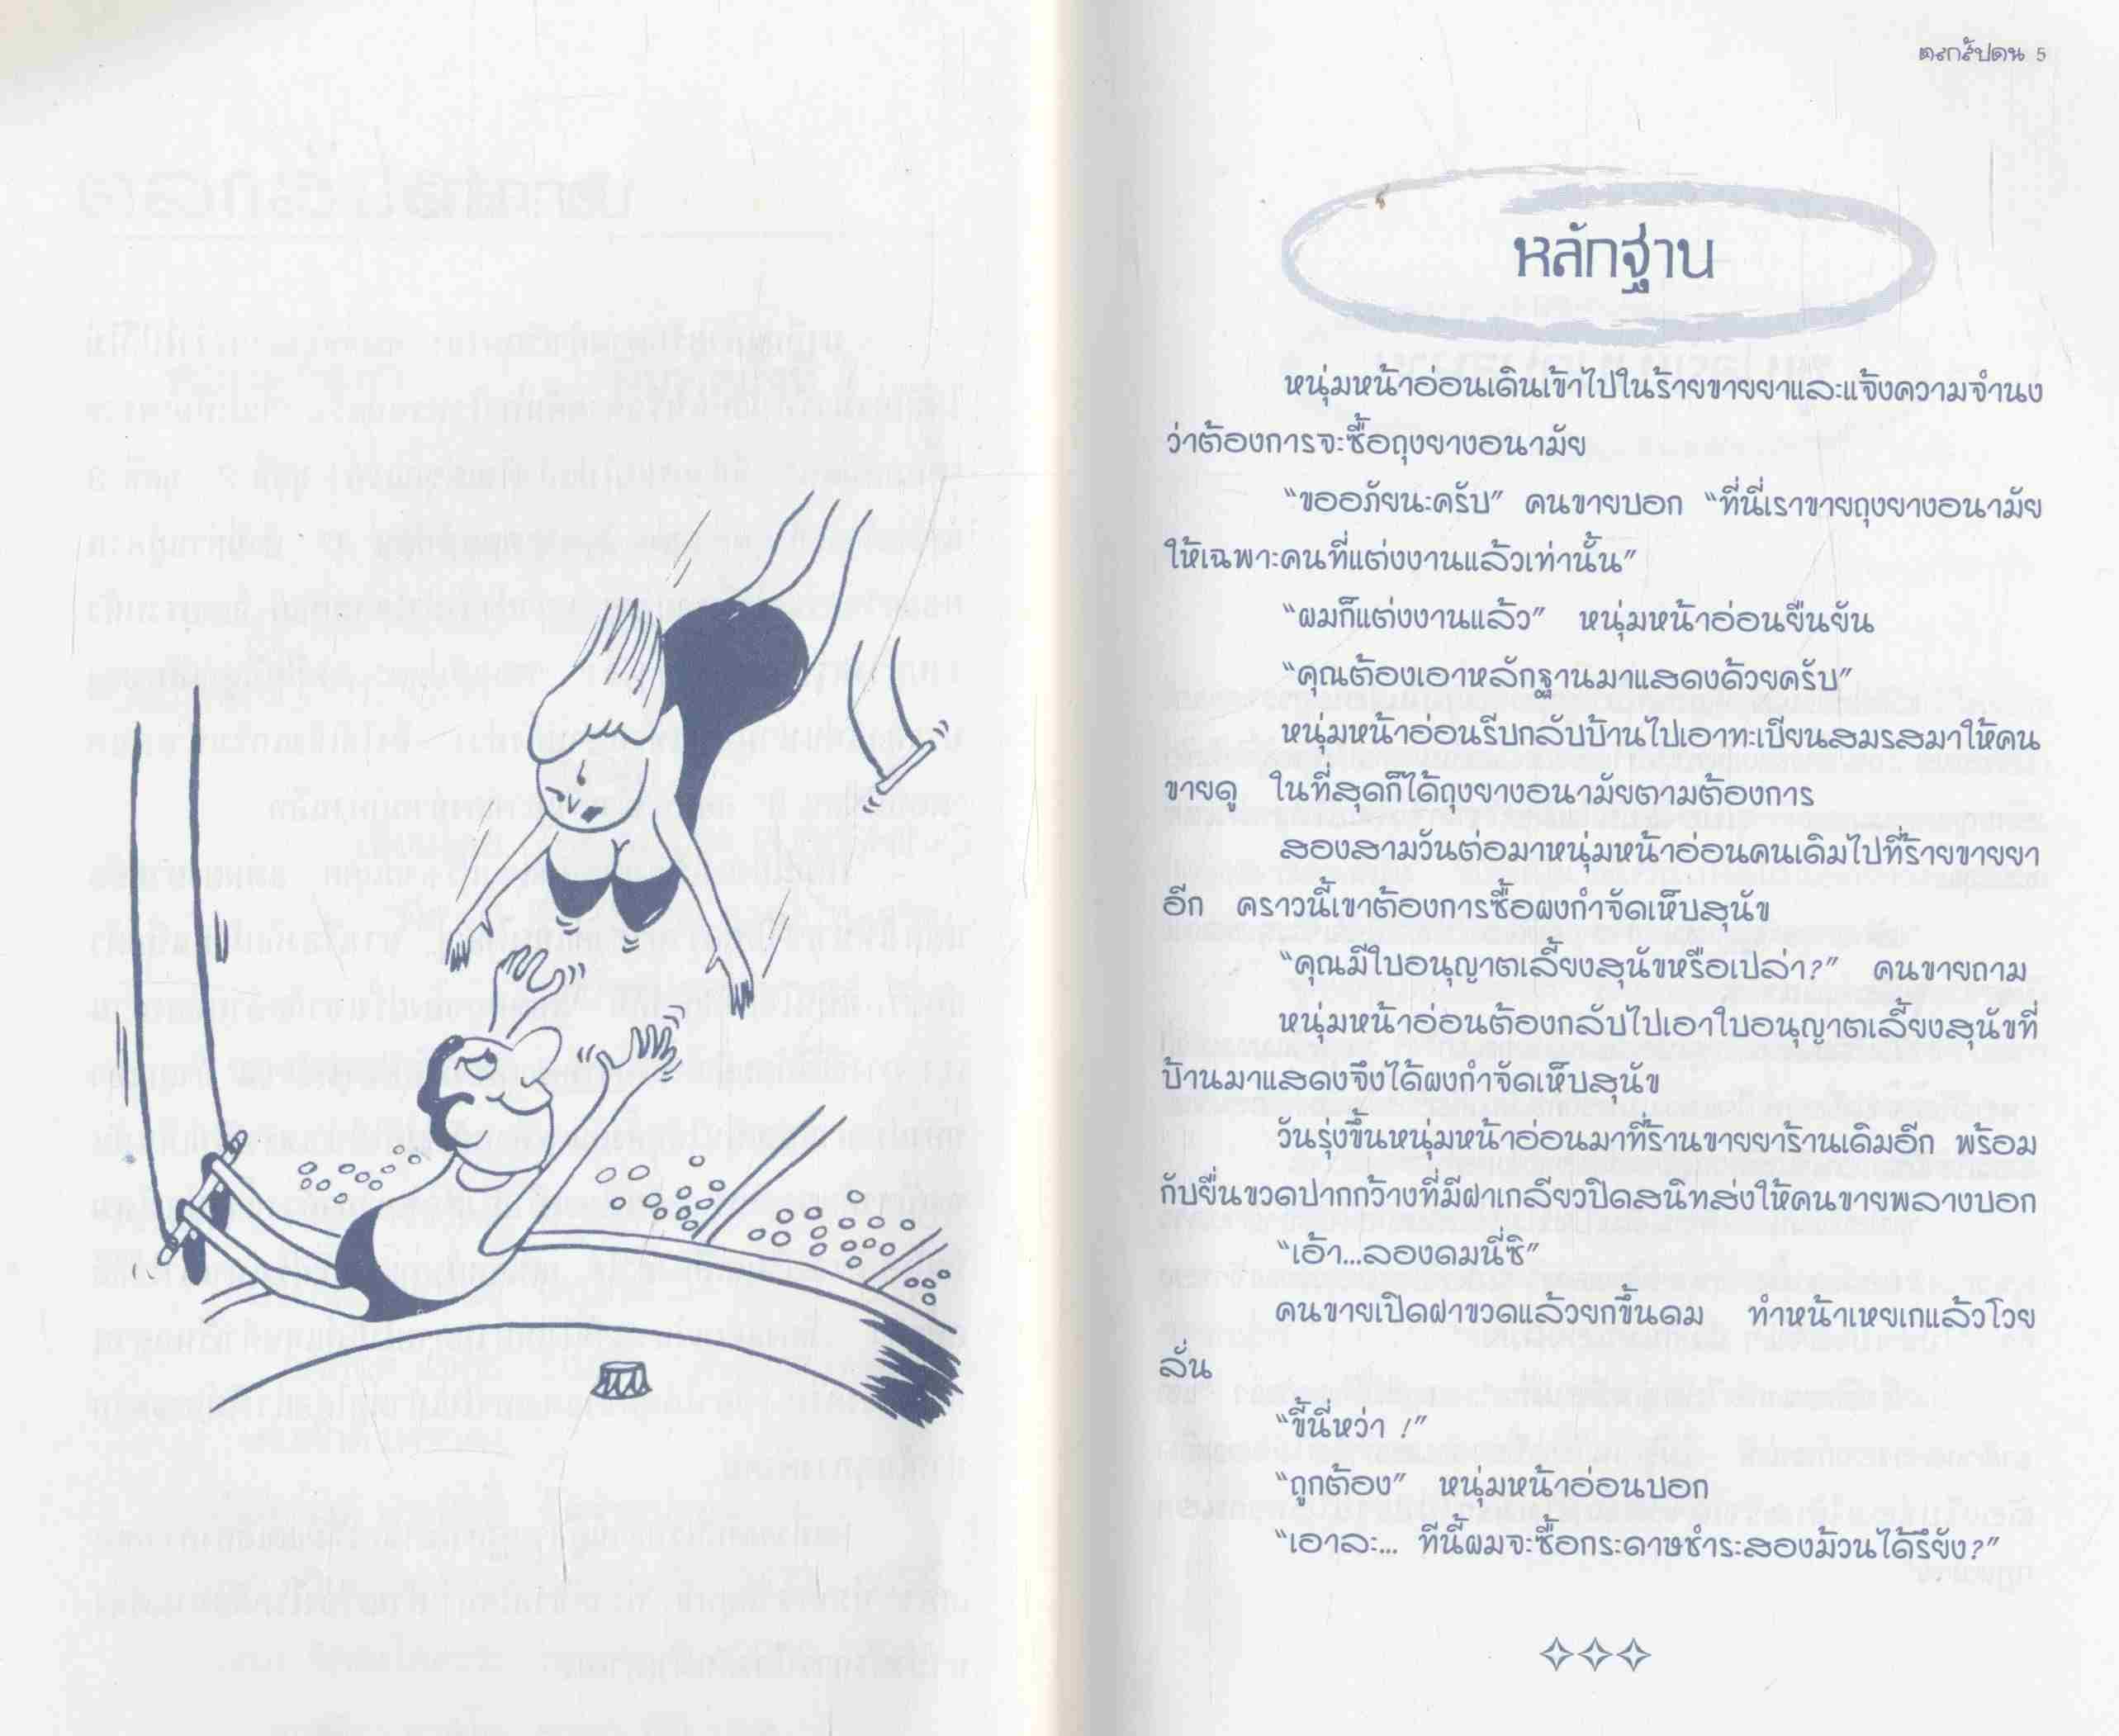 ตลกสัปดน 5
หลักฐาน
หนุ่มหน้าอ่อนเดินเข้าไปในร้ายขายยาและแจ้งความจำนง
ว่าต้องการจะซื้อถุงยางอนามัย
“ขออภัยนะครับ” คนขายบอก “ที่นี่เราขายถุงยางอนามัย
ให้เฉพาะคนที่แต่งงานแล้วเท่านั้น”
“ผมก็แต่งงานแล้ว” หนุ่มหน้าอ่อนยืนยัน
“คุณต้องเอาหลักฐานมาแสดงด้วยครับ”
หนุ่มหน้าอ่อนรีบกลับบ้านไปเอาทะเบียนสมรสมาให้คน
ขายดู ในที่สุดก็ได้ถุงยางอนามัยตามต้องการ
สองสามวันต่อมาหนุ่มหน้าอ่อนคนเดิมไปที่ร้ายขายยา
อีก คราวนี้เขาต้องการซื้อผงกำจัดเห็บสุนัข
“คุณมีใบอนุญาตเลี้ยงสุนัขหรือเปล่า?” คนขายถาม
หนุ่มหน้าอ่อนต้องกลับไปเอาใบอนุญาตเลี้ยงสุนัขที่
บ้านมาแสดงจึงได้ผงกำจัดเห็บสุนัข
วันรุ่งขึ้นหนุ่มหน้าอ่อนมาที่ร้านขายยาร้านเดิมอีก พร้อม
กับยื่นขวดปากกว้างที่มีฝาเกลียวปิดสนิทส่งให้คนขายพลางบอก
“เอ้า...ลองดมนี่ซิ”
คนขายเปิดฝาขวดแล้วยกขึ้นดม ทำหน้าเหยเกแล้วโวย
ลั่น
“ขี้นี่หว่า !”
“ถูกต้อง” หนุ่มหน้าอ่อนบอก
“เอาละ... ทีนี้ผมจะซื้อกระดาษชำระสองม้วนได้รึยัง?”